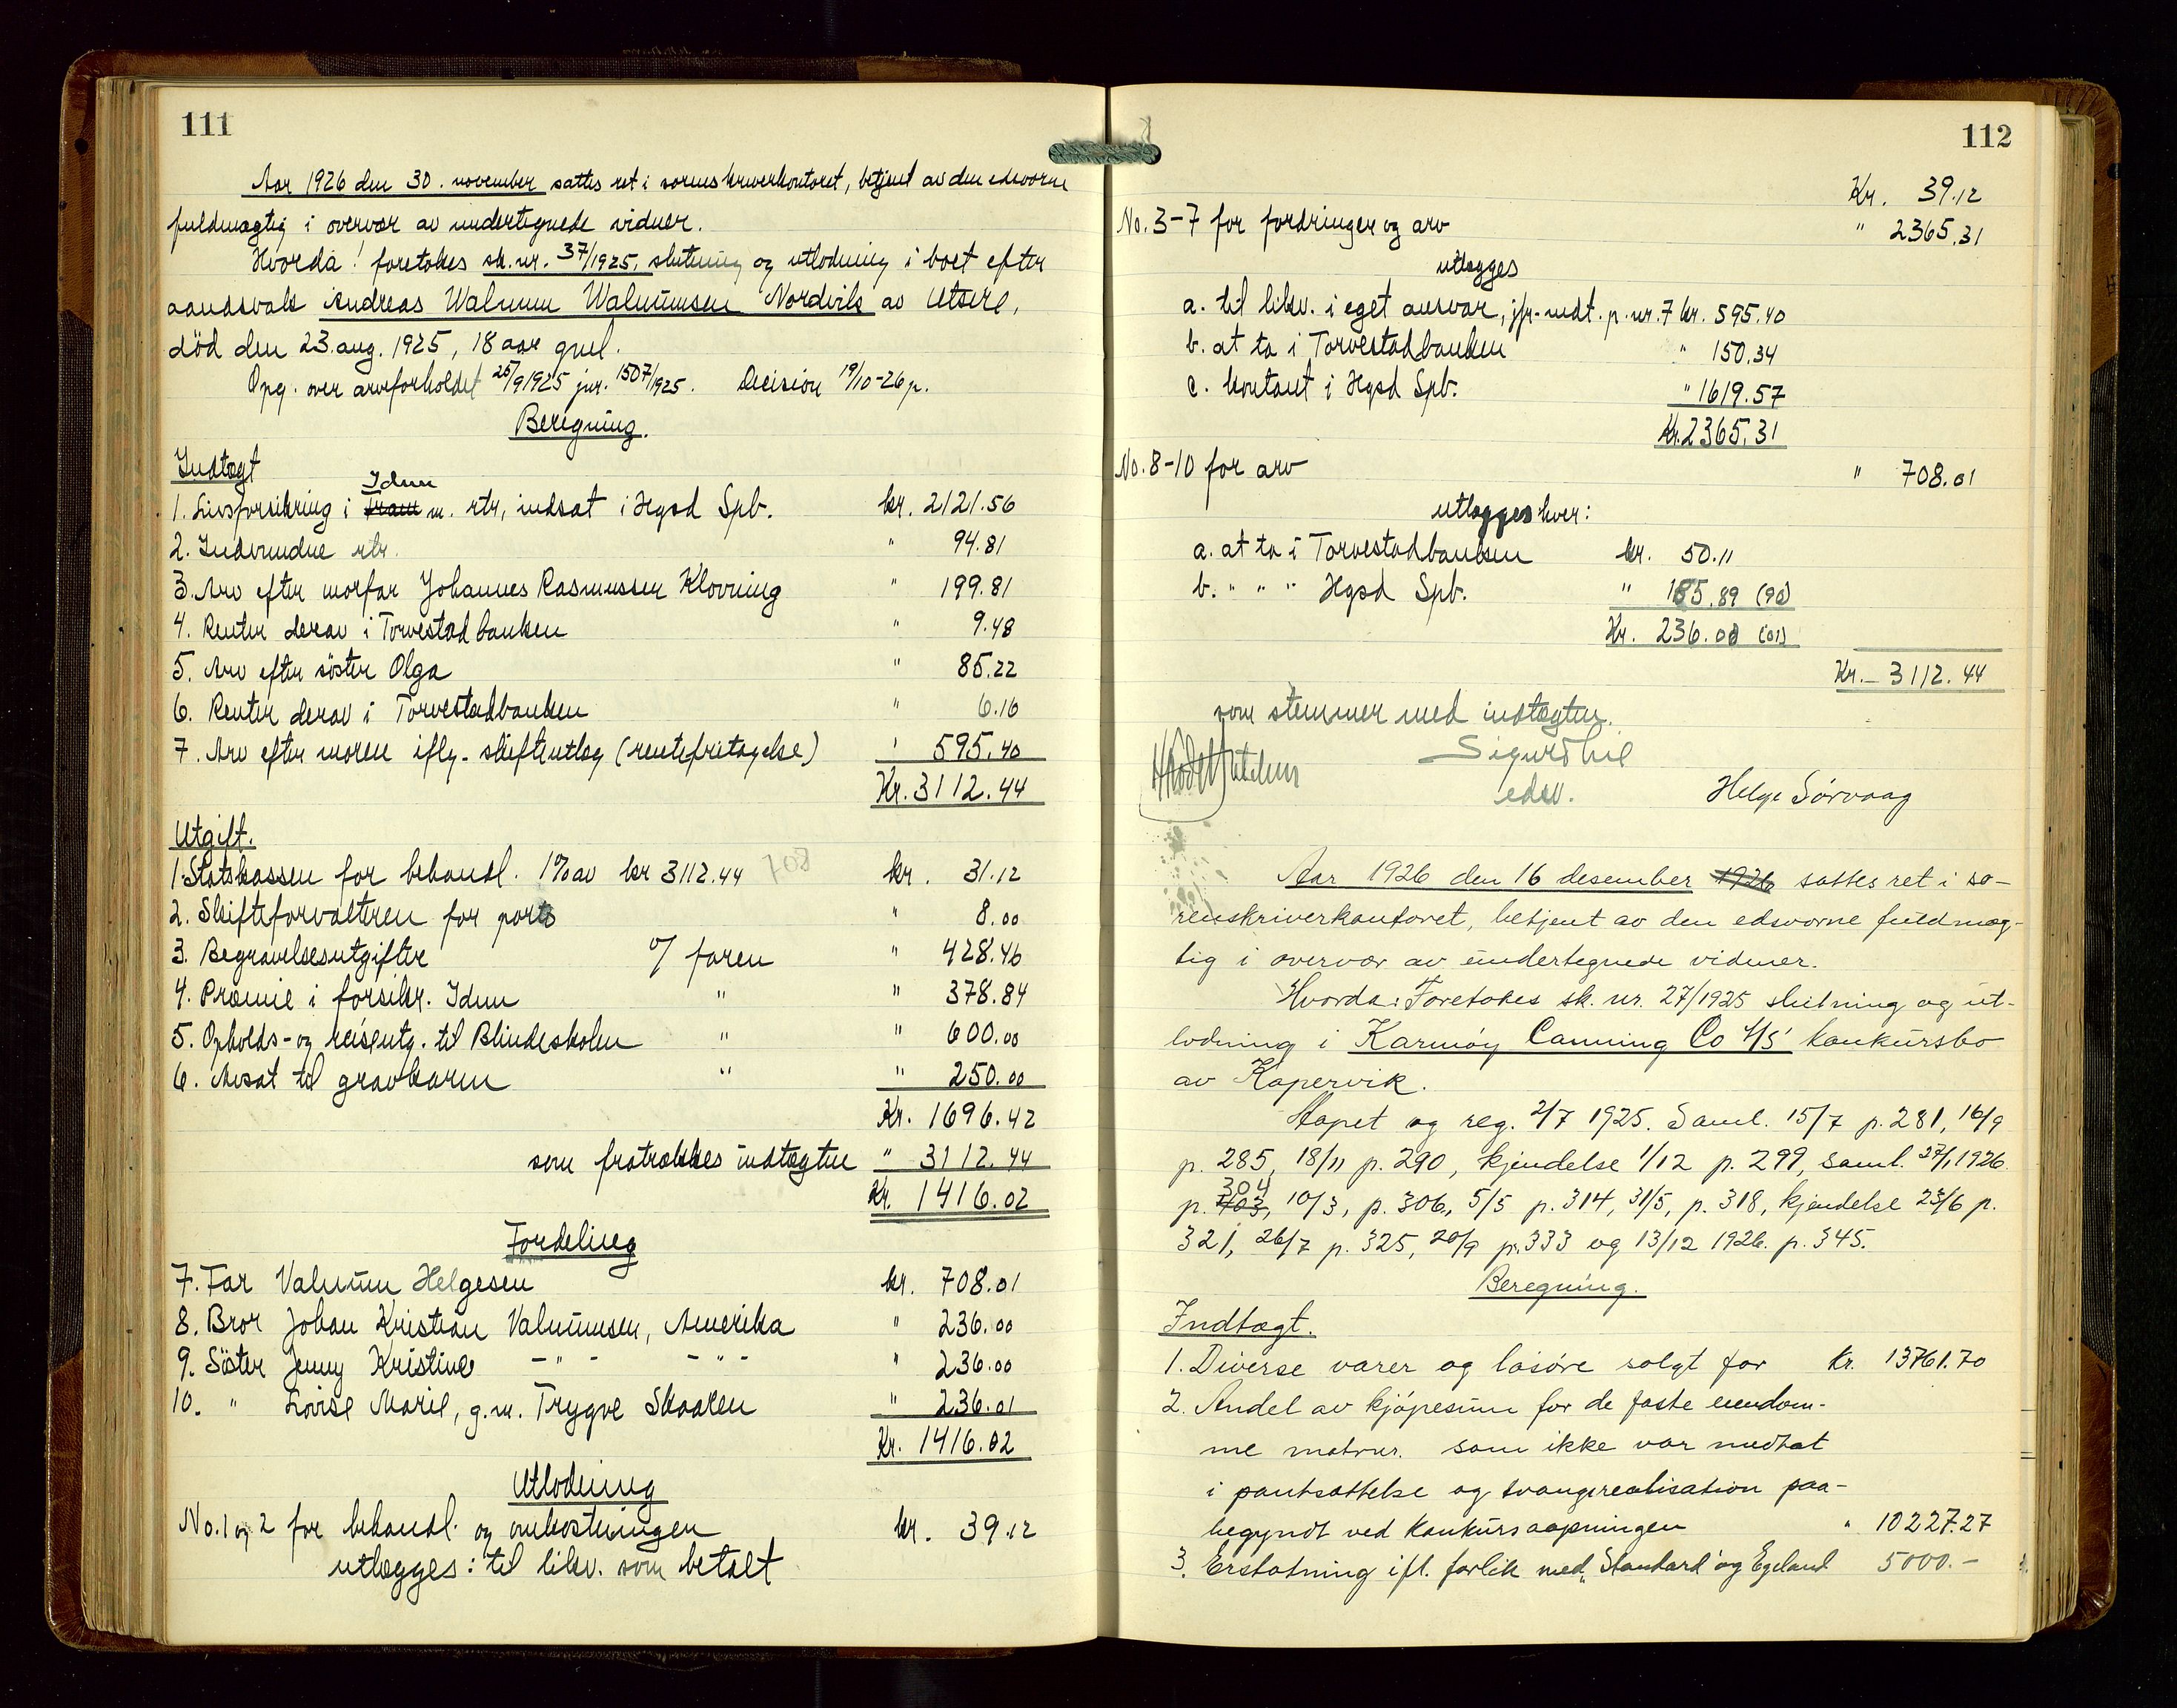 111
Aar 1926 den 30. november sattes ret i sorenskriverkontoret, betjent av den edsvorne
fuldmægtig i overvær av undertegnede vidner.
Hvorda! foretokes sk. nr. 37/1925, slutning og utlodning i boet efter
aandsvak Andreas Walnum Walnumsen Nordvik av Utsire,
død den 23. aug. 1925, 18 aar gml.
Opg. over arveforholdet 25/9 1925 jnr. 1507/1925. Decision 19/10-26 p.
Beregning.
Indtægt
Idun
1. Livsforsikring i Fram m. rtr, indsat i Hgsd Spb. kr. 2121.56
2. Indvundne rtr. " 94.81
3. Arv efter morfar Johannes Rasmussen Klovning " 199.81
4. Renter derav i Torvestadbanken " 9.48
5. Arv efter søster Olga " 85.22
6. Renter derav i Torvestadbanken " 6.16
7. Arv efter moren iflg. skifteutlæg (rentefritagelse) " 595.40
Kr. 3112.44
Utgift.
1. Statskassen for behandl. 1% av kr 3112.44 708 kr. 31.12
2. Skifteforvalteren for porto " 8.00
3. Begravelsesutgifter o/ faren " 428.46
4. Præmie i forsikr. Idun " " 378.84
5. Opholds- og reiseutg. til Blindeskolen " " 600.00
6. Avsat til gravkarm " " 250.00
Kr. 1696.42
som fratrækkes indtægten " 3112.44
Kr. 1416.02
Fordeling
7. Far Valnum Helgesen kr. 708.01
8. Bror Johan Kristian Valnumsen, Amerika " 236.00
9. Søster Jenny Kristine - " - - " - " 236.00
10. " Lovise Marie, g.m. Trygve Skaalen " 236.01
Kr. 1416.02
Utlodning
No. 1 og 2 for behandl. og omkostningen kr. 39.12
utlægges: til likv. som betalt
112
Kr. 39.12
No. 3-7 for fordringer og arv " 2365.31
utlægges
a. til likv. i eget ansvar, jfr. indt. p. nr. 7 kr. 595.40
b. at ta i Torvestadbanken " 150.34
c. kontant i Hgsd Spb. " 1619.57
Kr. 2365.31
No. 8-10 for arv " 708.01
utlægges hver:
a. at ta i Torvestadbanken kr. 50.11
b. " " " Hgsd Spb. " 185.89 (90)
Kr. 236.00 (01)
Kr. 3112.44
som stemmer med indtægten.
Sigurd
edsv. Helge Sørvaag
Aar 1926 den 16 desember 1926 sattes ret i so-
renskriverkontoret, betjent av den edsvorne fuldmæg-
tig i overvær av undertegnede vidner.
Hvorda: Foretokes sk. nr. 27/1925 slutning og ut-
lodning i Karmøy Canning Co A/S' konkursbo
av Kopervik.
Aapet og reg. 2/7 1925. Saml. 15/7 p. 281, 16/9
p. 285, 18/11 p. 290, kjendelse 1/12 p. 299, saml. 27/1 1926
304
p. 403, 10/3, p. 306, 5/5 p. 314, 31/5, p. 318, kjendelse 23/6 p.
321, 26/7 p. 325, 20/9 p. 333 og 13/12 1926. p. 345.
Beregning.
Indtægt.
1. Diverse varer og løsøre solgt for kr. 13761.70
2. Andel av kjøpesum for de faste eiendom-
me matrur. som ikke var medtat
i pantsættelse og tvangsrealisation paa-
begyndt ved konkursaapningen " 10227.27
3. Erstatning ifl. forlik med "Standard" og Egeland 5000.-